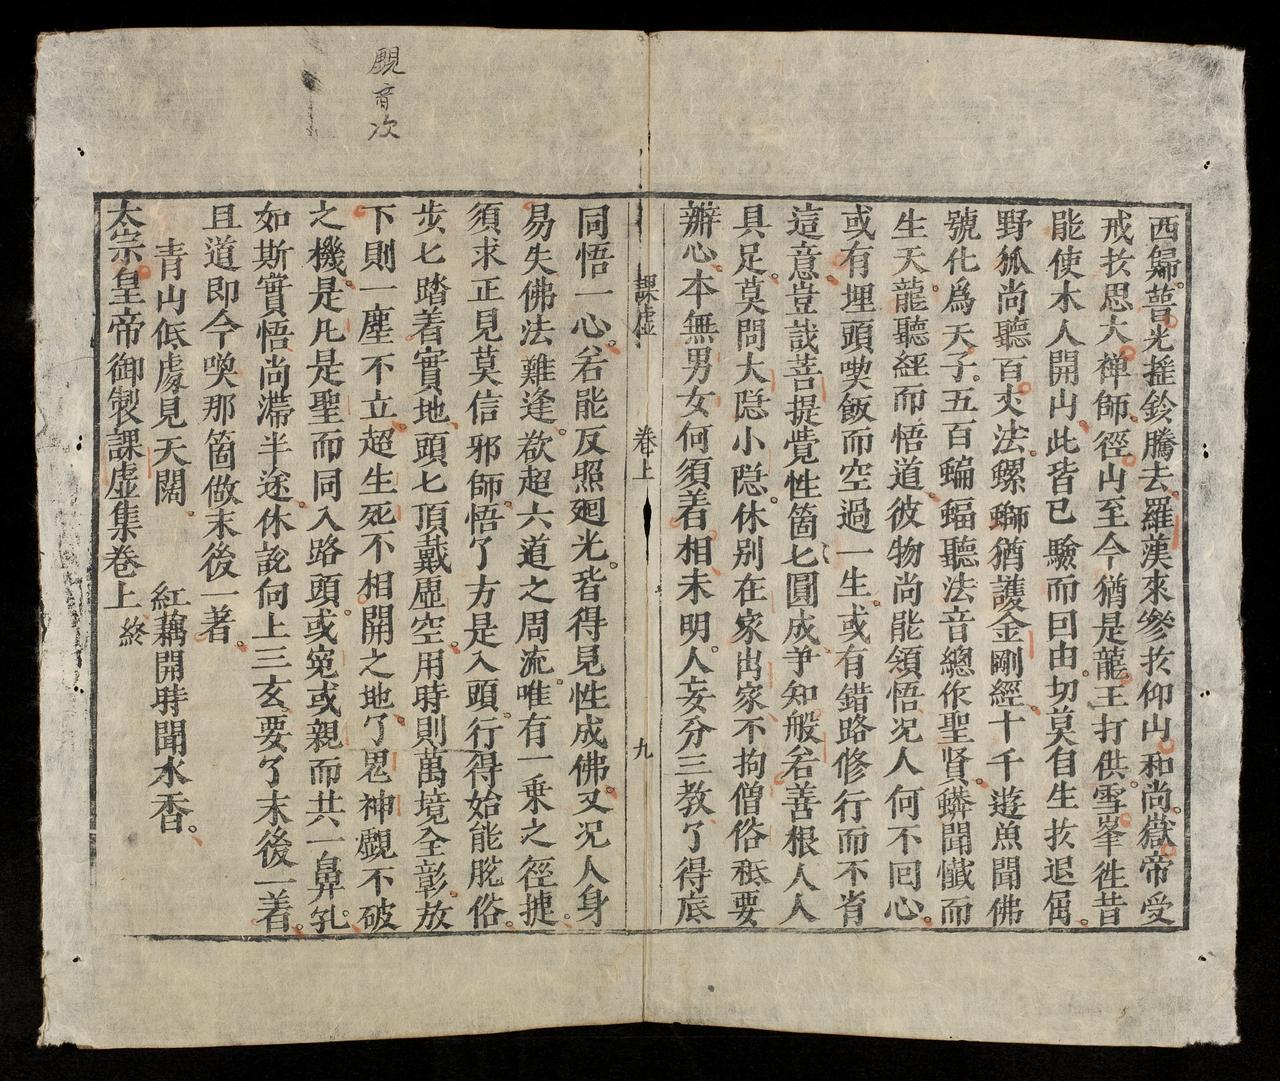 西歸普光搖鈴騰去羅漢來參扵仰山和尚嶽帝受
戒扵思大禅師徑山至今猶是龍王打供雪峯徃昔
能使木人開山此皆已驗而回由切莫自生扵退屑
野狐尚聽百丈法螺螄猶護金剛經十千遊魚聞佛
號化爲天子五百蝙蝠聽法音總作聖賢蠎聞懺而
生天龍聽經而悟道彼物尚能領悟况人何不囘心
或有埋頭喫飯而空過一生或有錯路修行而不肯
這意豈㦲菩提覺性箇匕圓成争知般若善根人人
具足莫問大隐小隐休别在家出家不拘僧俗秪要
辦心本無男女何須着相未明人妄分三教了得底
課虛 卷上 九
同悟一心若能反照廻光皆得見性成佛又况人身
易失佛法難逢欲超六道之周流唯有一乗之徑捷
須求正見莫信邪師悟了方是入頭行得始能脱俗
步匕踏着實地頭匕頂戴虛空用時則萬境全彰放
下則一塵不立超生死不相開之地了鬼神覷不破
之機是凡是聖而同入路頭或寃或親而共一鼻孔
如斯實悟尚滯半途休說向上三玄要了末後一着
且道即今喚那箇做末後一著
青山低處見天闊 紅藕開時聞水香
太宗皇帝御製課虛集卷上終
覷音次